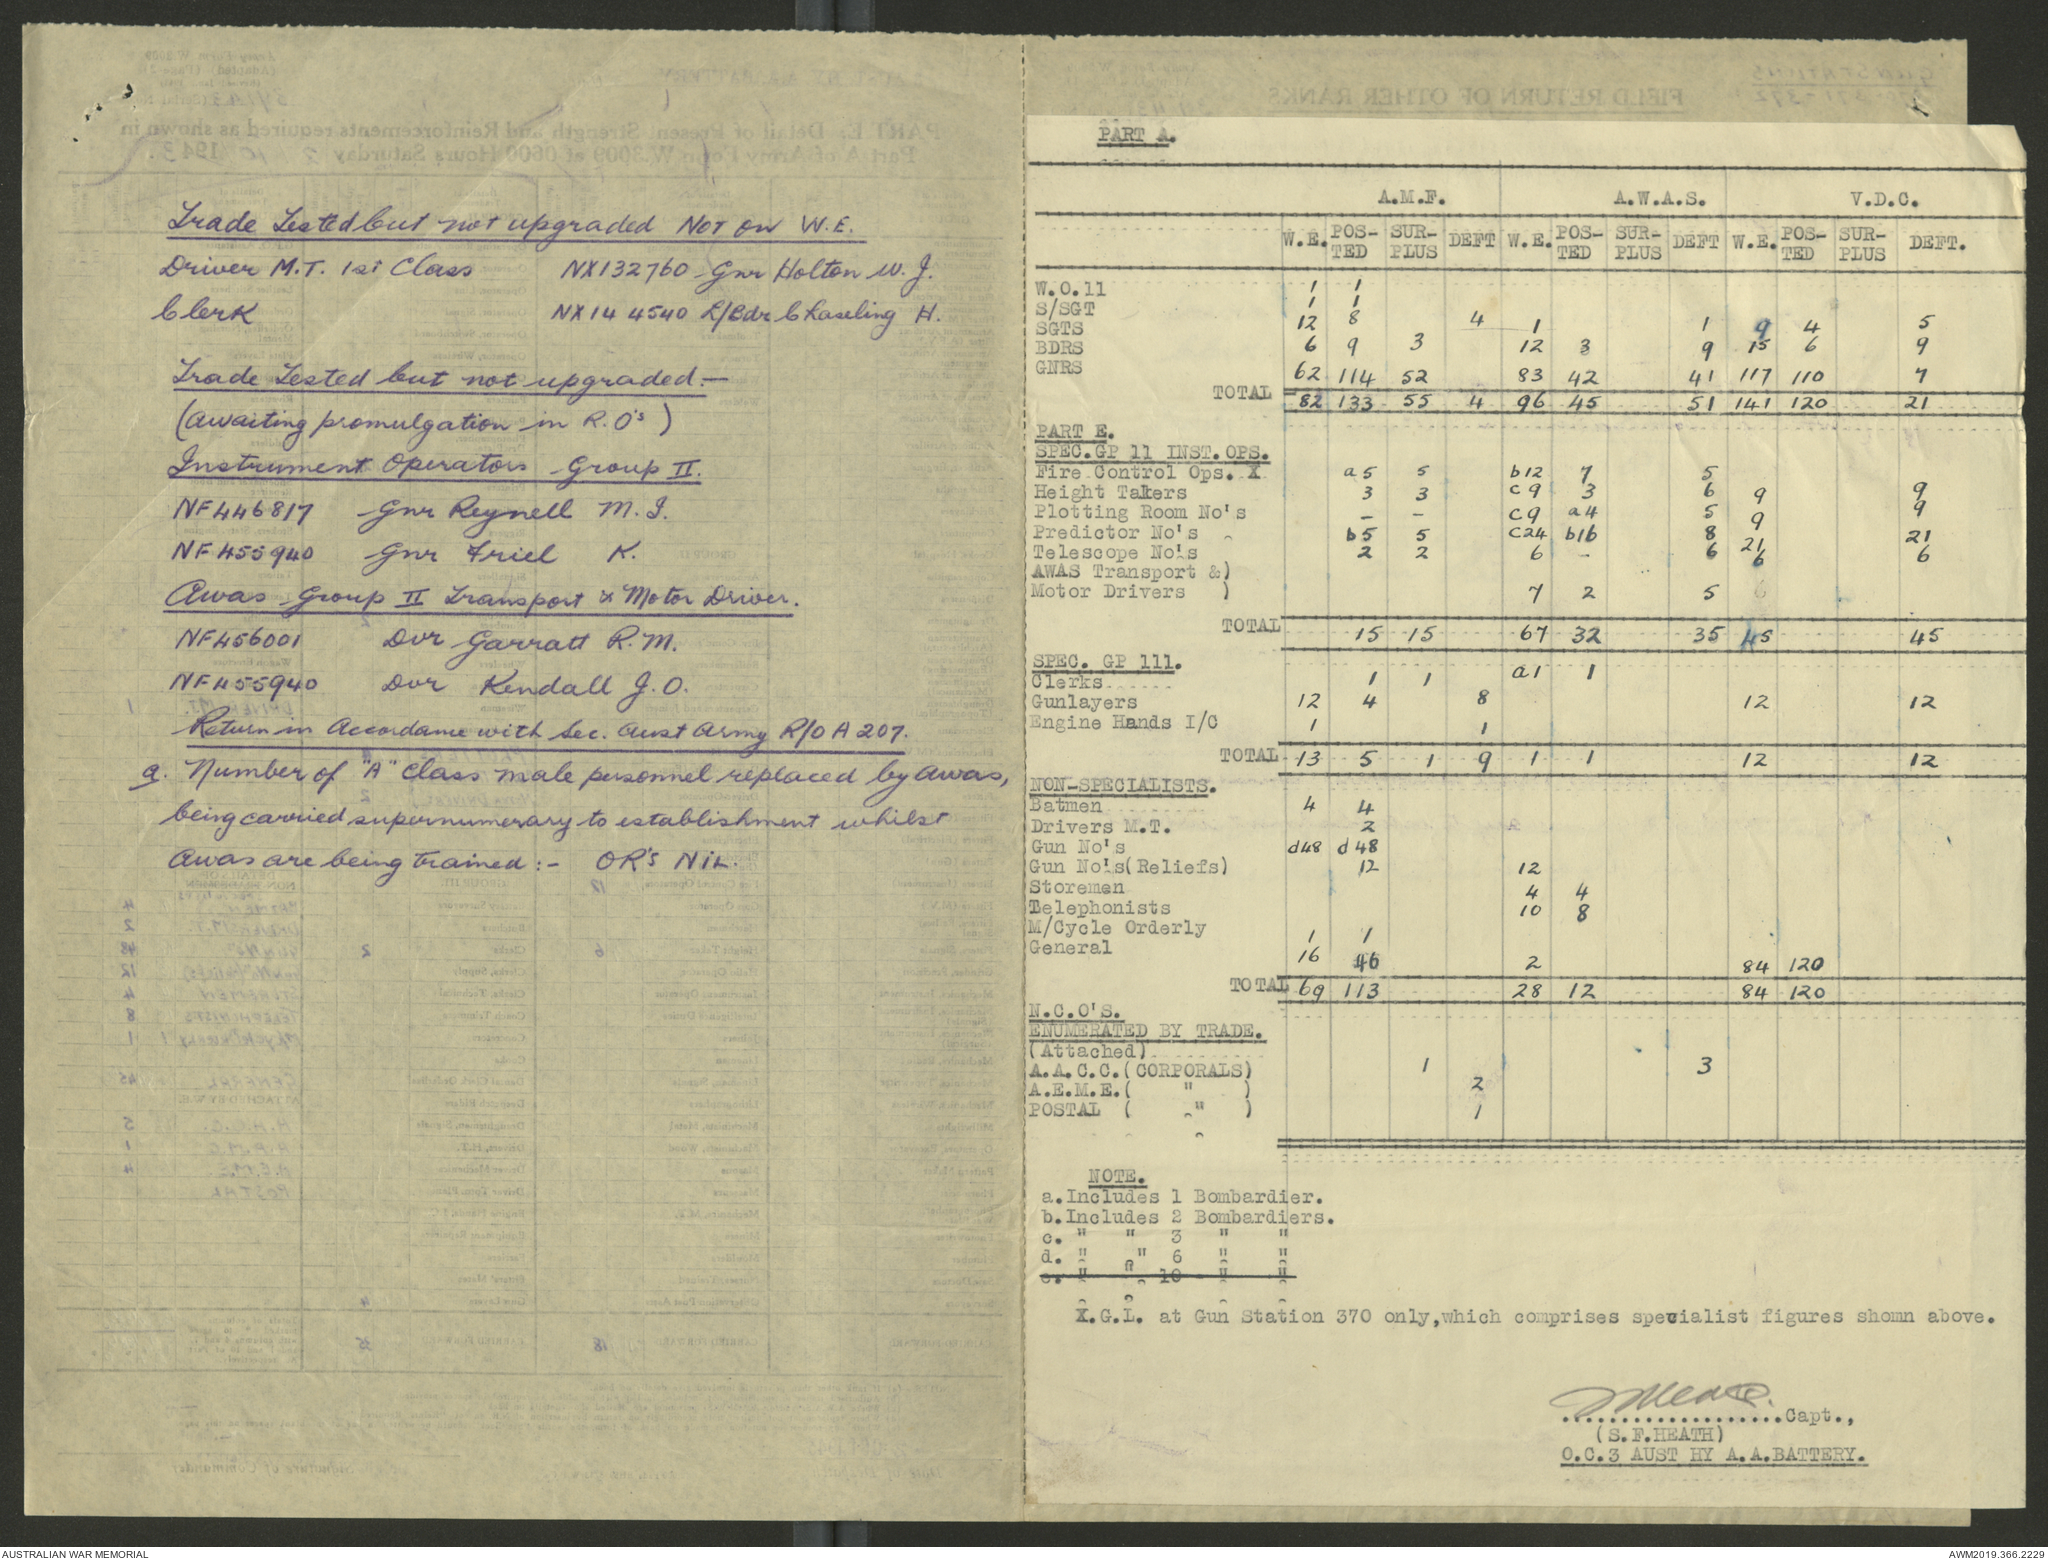 Trade Tested but not upgraded NOT ON W.E.
Driver M.T. 1st Class NX132760 Gnr Holton W. J.
Clerk NX144540 L/Bdr Chaseling H.
Trade Tested but not upgraded :-
(Awaiting promulgation in R.O's)
Instrument Operators Group II.
NF446817 Gnr Reynell M. J.
NF455940 Gnr Friel K.
Awas Group II Transport & Motor Driver.
NF456001 Dvr Garratt R. M.
NF455940 Dvr Kendall J. O.
Return in Accordance with Sec. Aust Army R/O A 207.
a. Number of "A" Class male personnel replaced by Awas,
being carried supernumerary to establishment whilst
Awas are being trained :- OR's NIL.
PART A.
A.M.F. A.W.A.S. V.D.C.
W.E. POS-TED SUR-PLUS DEFT W.E. POS-TED SUR-PLUS DEFT W.E. POS-TED SUR-PLUS DEFT.
W.O.11 1 1
S/SGT 1 1
SGTS 12 8 4 1 1 9 4 5
BDRS 6 9 3 12 3 9 15 6 9
GNRS 62 114 52 83 42 41 117 110 7
TOTAL 82 133 55 4 96 45 51 141 120 21
PART E.
SPEC.GP 11 INST.OPS.
Fire Control Ops. X a5 5 b12 7 5
Height Takers 3 3 c9 3 6 9 9
Plotting Room No's - - c9 a4 5 9 9
Predictor No's b5 5 c24 b16 8 21 21
Telescope No's 2 2 6 - 6 6 6
AWAS Transport &)
Motor Drivers ) 7 2 5
TOTAL 15 15 67 32 35 45 45
SPEC. GP 111.
Clerks 1 1 a1 1
Gunlayers 12 4 8 12 12
Engine Hands I/C 1 1
TOTAL 13 5 1 9 1 1 12 12
NON-SPECIALISTS.
Batmen 4 4
Drivers M.T. 2
Gun No's d48 d48
Gun No's(Reliefs) 12 12
Storemen 4 4
Telephonists 10 8
M/Cycle Orderly 1 1
General 16 46 2 84 120
TOTAL 69 113 28 12 84 120
N.C.O'S.
ENUMERATED BY TRADE.
(Attached)
A.A.C.C.(CORPORALS) 1 3
A.E.M.E.( " ) 2
POSTAL ( " ) 1
NOTE.
a.Includes 1 Bombardier.
b.Includes 2 Bombardiers.
c. " " 3 " "
d. " " 6 " "
e. " " 10 " "
X.G.L. at Gun Station 370 only,which comprises specialist figures shomn above.
....................Capt.,
(S.F.HEATH)
O.C.3 AUST HY A.A.BATTERY.
AUSTRALIAN WAR MEMORIAL AWM2019.366.2229